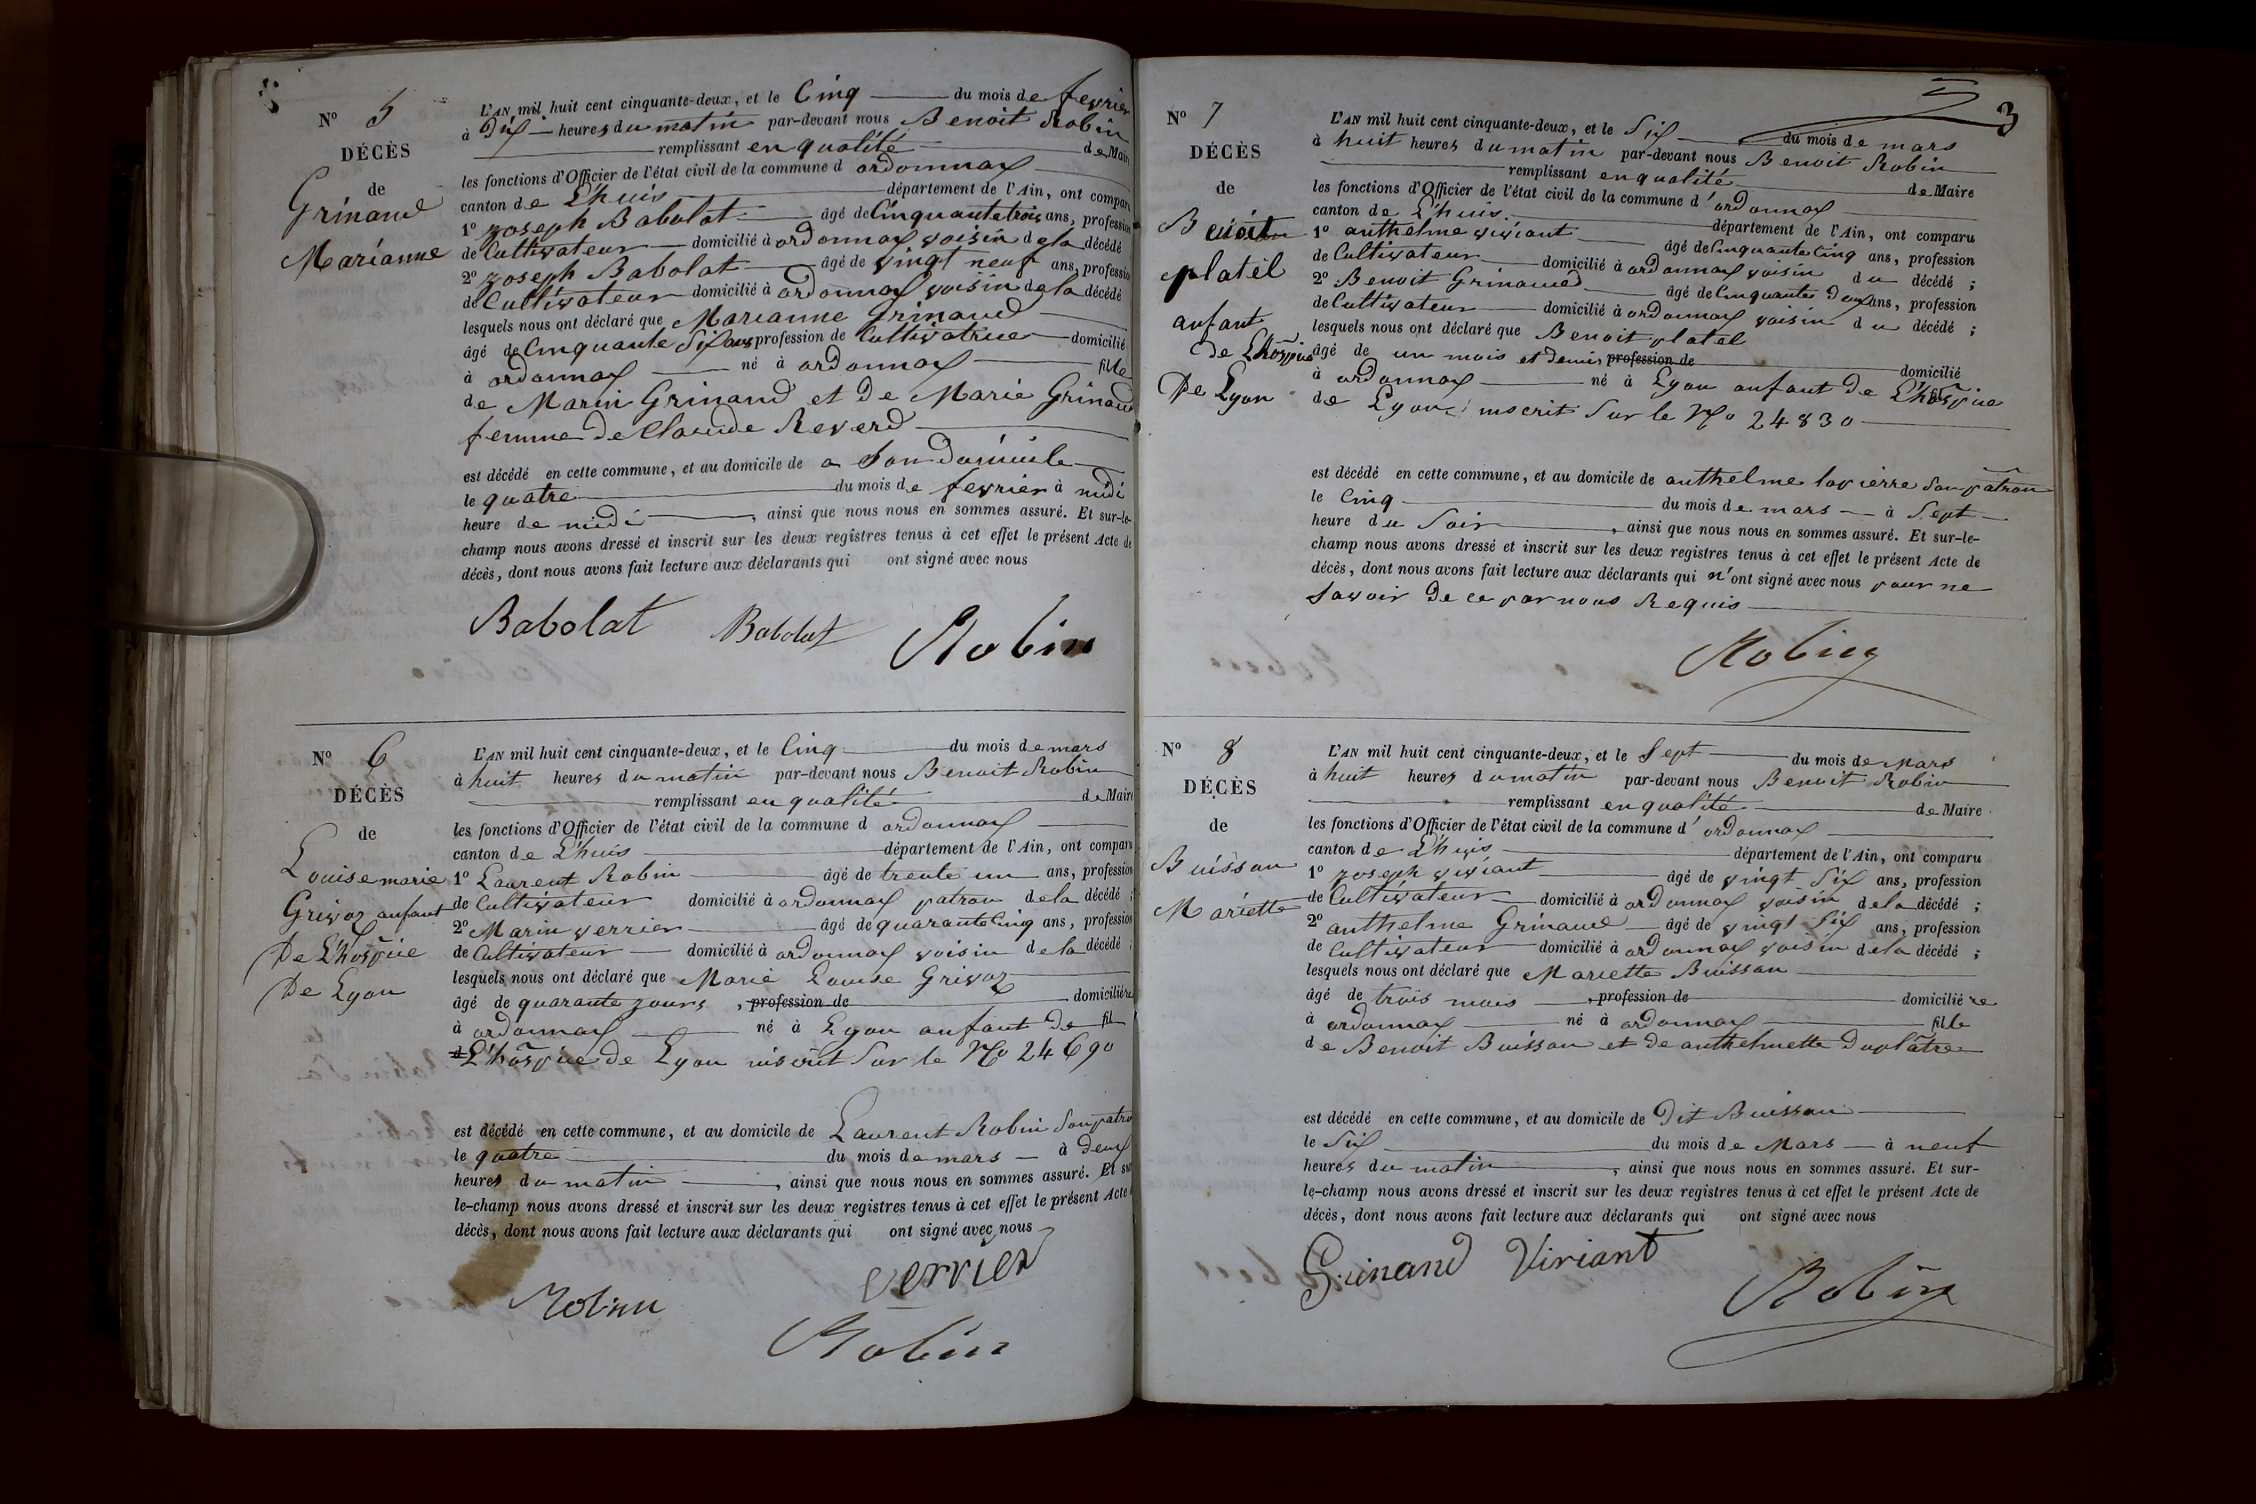 N° 5
DÉCÈS
de
Grinand
Marianne
L'AN mil huit cent cinquante-deux, et le Cinq du mois de fevrier
à Dix heures du matin par-devant nous Benoit Robin
remplissant en qualité de Maire
les fonctions d'Officier de l'état civil de la commune d ordonnax
canton de L'huis département de l'Ain, ont comparu
1° joseph Babolat âgé de Cinquante trois ans, profession
de Cultivateur domicilié à ordonnax voisin de la décédé
2° joseph Babolat âgé de vingt neuf ans, profession
de Cultivateur domicilié à ordonnax voisin de la décédé
lesquels nous ont déclaré que Marianne Grinand
âgé de Cinquante Six ans profession de Cultivatrice domicilié
à ordonnax né à ordonnax fille
de Marin Grinand et De Marie Grinand
femme De Claude Reverd
est décédé en cette commune, et au domicile de a Son Domicile
le quatre du mois de fevrier à midi
heure de midi, ainsi que nous nous en sommes assuré. Et sur-le-
champ nous avons dressé et inscrit sur les deux registres tenus à cet effet le présent Acte de
décès, dont nous avons fait lecture aux déclarants qui ont signé avec nous
Babolat Babolat Robin
N° 6
DÉCÈS
de
Louise marie
Grivoz anfant
De L'hospice
De Lyon
L'AN mil huit cent cinquante-deux, et le Cinq du mois de mars
à huit heures du matin par-devant nous Benoit Robin
remplissant en qualité de Maire
les fonctions d'Officier de l'état civil de la commune d ordonnax
canton de L'huis département de l'Ain, ont comparu
1° Laurent Robin âgé de trente un ans, profession
de Cultivateur domicilié à ordonnax patron de la décédé ;
2° Marin verrier âgé de quarante Cinq ans, profession
de Cultivateur domicilié à ordonnax voisin de la décédé ;
lesquels nous ont déclaré que Marie Louise Grivoz
âgé de quarante jours, profession de domicilié re
à ordonnax né à Lyon anfant De fil
d L'hospice de Lyon inscrit Sur le N° 24690
est décédé en cette commune, et au domicile de Laurent Robin Son patron
le quatre du mois de mars à Deux
heures du matin, ainsi que nous nous en sommes assuré. Et sur-
le-champ nous avons dressé et inscrit sur les deux registres tenus à cet effet le présent Acte
décès, dont nous avons fait lecture aux déclarants qui ont signé avec nous
Robin verrier
Robin
3
N° 7
DÉCÈS
de
Benoit
platel
anfant
de L'hospice
De Lyon
L'AN mil huit cent cinquante-deux, et le Six du mois de mars
à huit heures du matin par-devant nous Benoit Robin
remplissant en qualité de Maire
les fonctions d'Officier de l'état civil de la commune d'ordonnax
canton de L'huis département de l'Ain, ont comparu
1° anthelme viviant âgé de Cinquante Cinq ans, profession
de Cultivateur domicilié à ordonnax voisin du décédé ;
2° Benoit Grinand âgé de Cinquante Deux ans, profession
de Cultivateur domicilié à ordonnax voisin du décédé ;
lesquels nous ont déclaré que Benoit platel
âgé de un mois et demis profession de domicilié
à ordonnax né à Lyon anfant de L'hospice
de Lyon inscrit Sur le N° 24830
est décédé en cette commune, et au domicile de anthelme lapierre Son patron
le Cinq du mois de mars à Sept
heure du Soir, ainsi que nous nous en sommes assuré. Et sur-le-
champ nous avons dressé et inscrit sur les deux registres tenus à cet effet le présent Acte de
décès, dont nous avons fait lecture aux déclarants qui n'ont signé avec nous pour ne
Savoir De ce par nous Requis
Robin
N° 8
DÉCÈS
de
Buisson
Mariette
L'AN mil huit cent cinquante-deux, et le Sept du mois de Mars
à huit heures du matin par-devant nous Benoit Robin
remplissant en qualité de Maire
les fonctions d'Officier de l'état civil de la commune d'ordonnax
canton de L'huis département de l'Ain, ont comparu
1° joseph viviant âgé de vingt Six ans, profession
de Cultivateur domicilié à ordonnax voisin de la décédé ;
2° anthelme Grinand âgé de vingt Six ans, profession
de Cultivateur domicilié à ordonnax voisin de la décédé ;
lesquels nous ont déclaré que Mariette Buisson
âgé de trois mois, profession de domicilié re
à ordonnax né à ordonnax fille
de Benoit Buisson et de anthelmette Duplâtre
est décédé en cette commune, et au domicile de Dit Buisson
le Six du mois de Mars à neuf
heures du matin, ainsi que nous nous en sommes assuré. Et sur-
le-champ nous avons dressé et inscrit sur les deux registres tenus à cet effet le présent Acte de
décès, dont nous avons fait lecture aux déclarants qui ont signé avec nous
Grinand Viviant
Robin